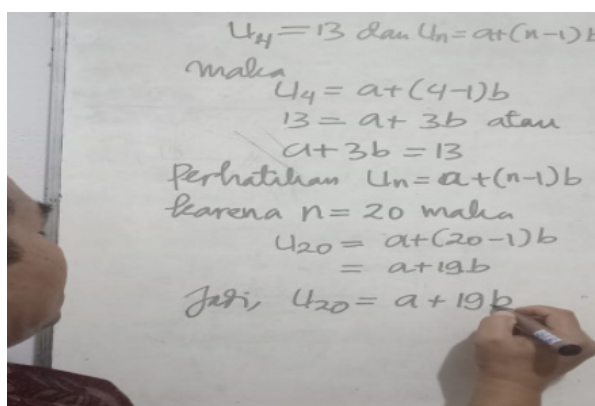 U4 = 13 dan Un = a+(n-1)b
maka
U4 = a+(4-1)b
13 = a + 3b atau
a+3b = 13
Perhatikan Un = a+(n-1)b
karena n = 20 maka
U20 = a+(20-1)b
= a+19b
Jadi, U20 = a + 19b